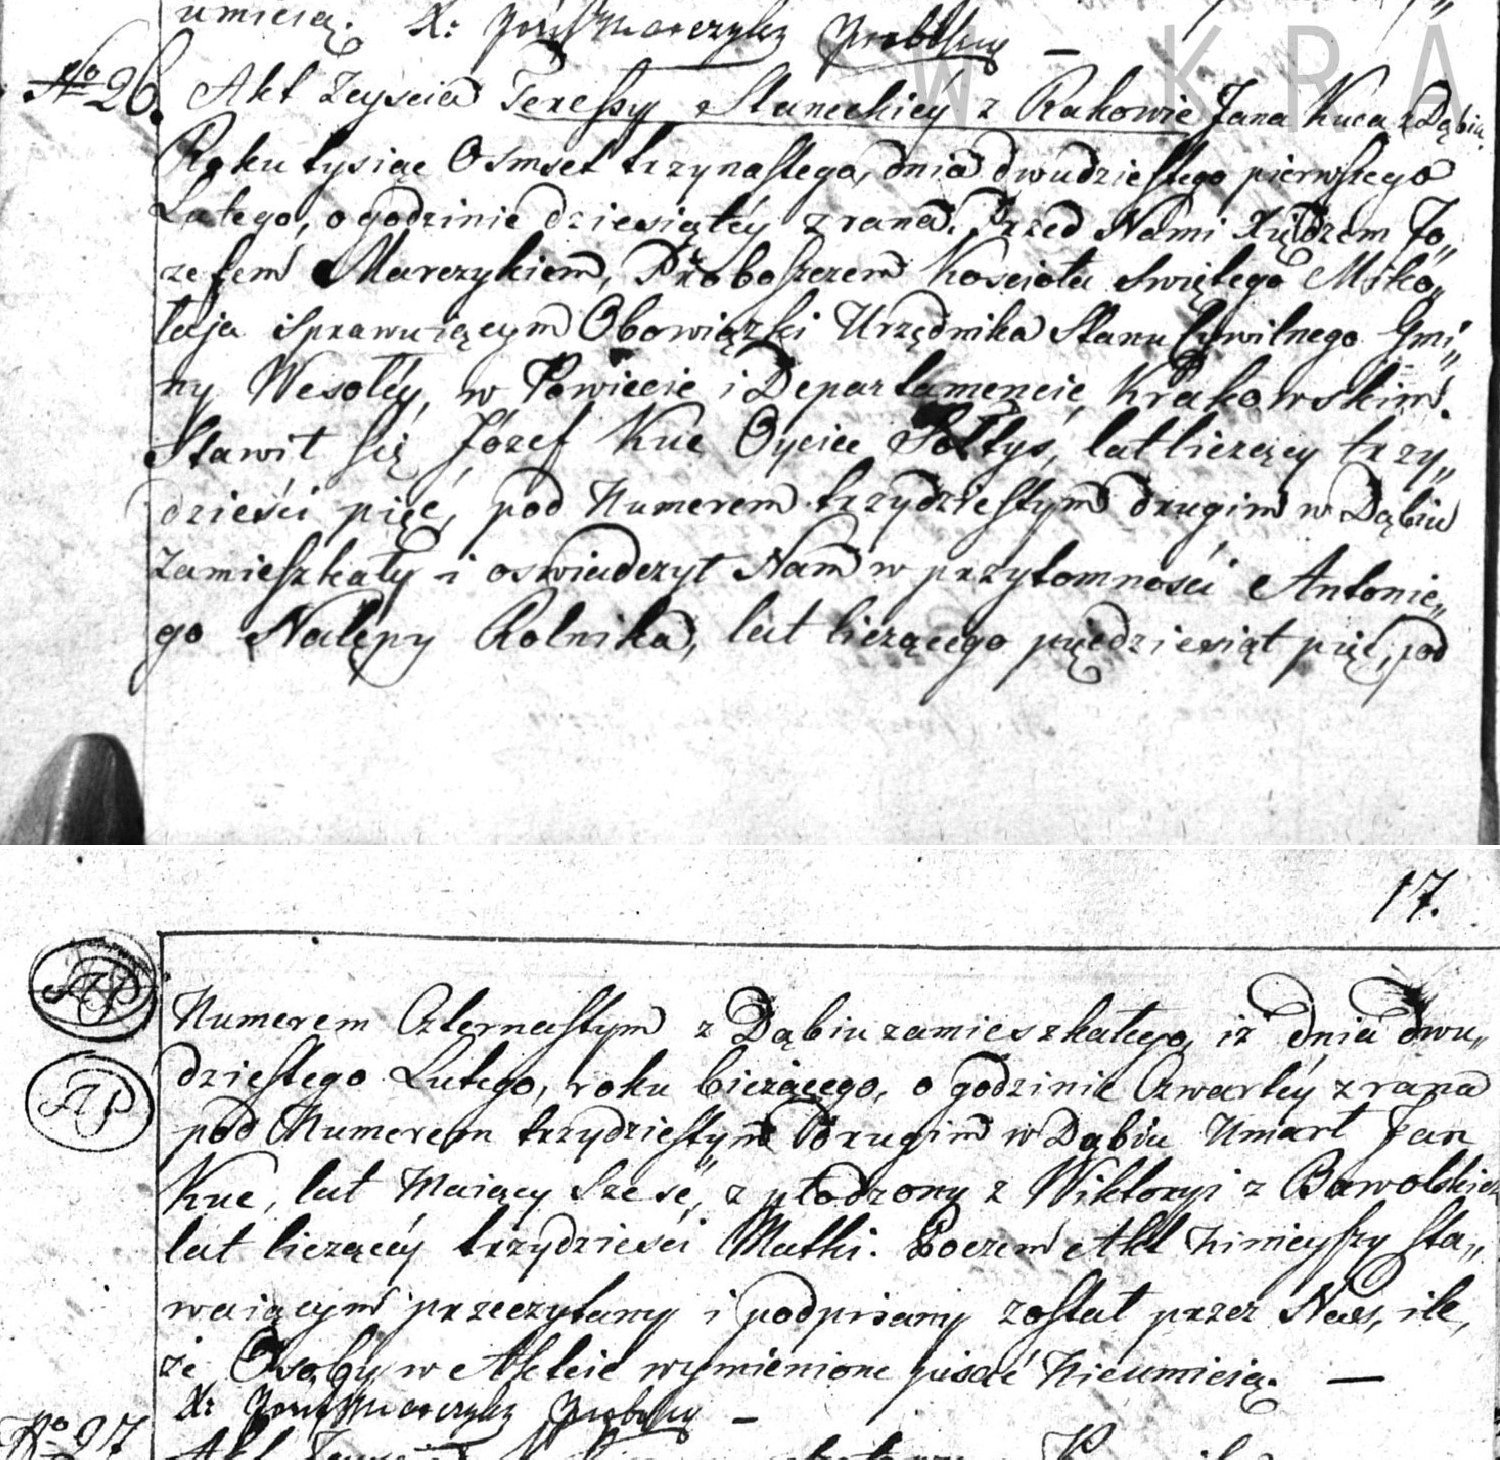 umieią. X: Józef Marczyk Proboszcz —
W KRA
No 26. Akt Zeyscia Teressy Staneckiey z Rakowic Jana Kuca z Dąbia.
Roku tysiąc Osmset trzynastego, dnia dwudziestego pierwszego
Lutego, o godzinie dziesiątéy z rana. Przed Nami Xiędzem Jo„
zefem Marczykiem, Proboszczem Kościoła Swiętego Miko„
łaja i sprawuiącym Obowiązki Urzędnika Stanu Cywilnego Gmi„
ny Wesołéy, w Powiecie i Departamencie Krakowskim.
Stawił się Józef Kuc Oyciec Sołtys, lat liczący trzy„
dzieści pięć, pod Numerem trzydziestym drugim w Dąbiu
zamieszkały i oswiadczył Nam w przytomności Antonie„
go Nalepy Rolnika, lat liczącego pięćdziesiąt pięć, pod
17.
AP
AP
Numerem Czternastym z Dąbiu zamieszkałego, iż dnia dwu„
dziestego Lutego, roku bieżącego, o godzinie Czwartéy z rana
pod Numerem trzydziestym drugim w Dąbiu Umarł Jan
Kuc, lat Maiący Sześć, z płodzony z Wiktoryi z Bawolskich
lat liczącéy trzydzieści Matki. Poczem Akt Ninieyszy sta„
waiącym przeczytany i podpisany został przez Nas, ile,
że Osoby w Akcie wymienione pisać Nieumieią. —
X: Józef Marczyk Proboszcz —
No 27 Akt